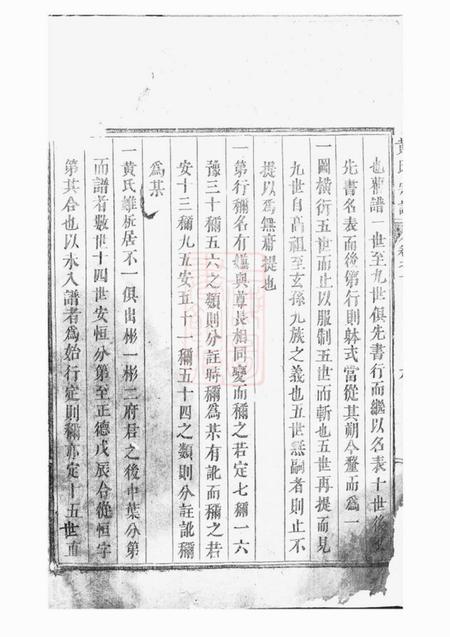 也舊譜一世至九世俱先書行而繼以名表十世後
先書名表而後第行則躰式當從其朔今釐而爲一
一圖橫衍五世而止以服制五世而斬也五世再提而見
九世自高祖至玄孫九族之義也五世無嗣者則止不
提以爲無齋提也
一第行稱名有嫌與尊長相同變而稱之若定七稱一六
豫三十稱五六之類則分註時稱爲某有訛而稱之若
安十三稱九五安五十一稱五十四之類則分註訛稱
爲某
一黃氏雖析居不一俱出彬一彬二府君之後中葉分第
而譜者數世十四世安恒分第至正德戊辰合從恒字
第其合也以未入譜者爲始行定則稱亦定十五世重
黃氏宗譜